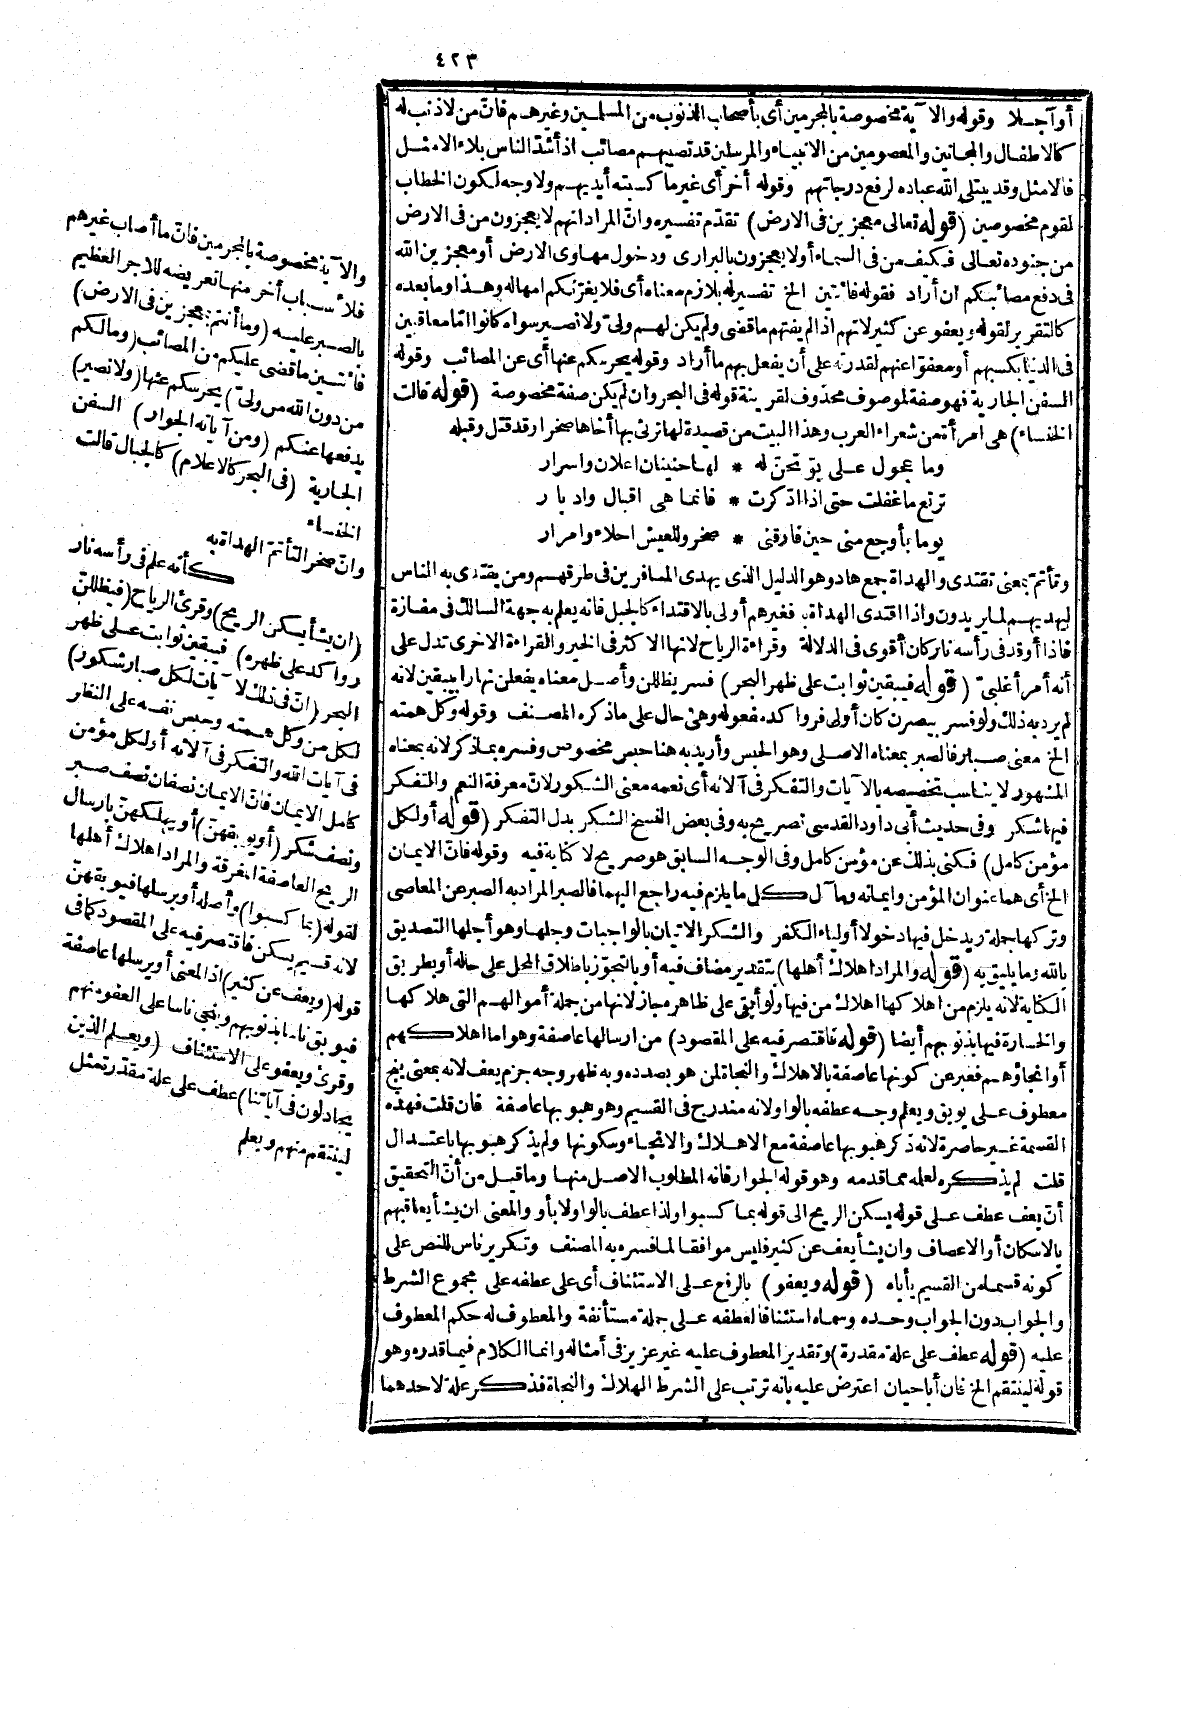 ٤٢٣
أو آجلا وقوله والآية مخصوصة بالمجرمين أى بأصحاب الذنوب من المسلمين وغيرهم فانّ من لا ذنب له
كالاطفال والمجانين والمعصومين من الانبياء والمرسلين قد تصيبهم مصائب اذ أشدّ الناس بلاء الامثل
فالامثل وقد يبتلى الله عباده لرفع درجاتهم وقوله أخر أى غير ما كسبته أيديهم ولا وجه لكون الخطاب
لقوم مخصوصين (قوله تعالى معجزين فى الارض) تقدّم تفسيره وانّ المراد انهم لا يعجزون من فى الارض
من جنوده تعالى فكيف من فى السماء أو لا يعجزون بالبرارى ودخول مهاوى الارض أو معجزين الله
فى دفع مصائبكم ان أراد فقوله فائتين الخ تفسير له بلازم معناه أى فلا يغرّنكم امهاله وهذا وما بعده
كالتقرير لقوله ويعفو عن كثير لانهم اذا لم يفتهم ما قضى ولم يكن لهم ولىّ ولا نصير سواه كانوا امّا معاقبين
فى الدنيا بكسبهم أو معفوّا عنهم لقدرته على أن يفعل بهم ما أراد وقوله يحرسكم عنها أى عن المصائب وقوله
السفن الجارية فهو صفة لموصوف محذوف لقرينة قوله فى البحر وان لم يكن صفة مخصوصة (قوله قالت
الخنساء) هى امرأة من شعراء العرب وهذا البيت من قصيدة لها ترثى بها أخاها صخرا وقد قتل وقبله
وما عجول على بوّ تحنّ له * لها حنينان اعلان واسرار
ترتع ما غفلت حتى اذا ادّكرت * فانما هى اقبال وادبار
يوما بأوجع منى حين فارقنى * صخر وللعيش احلاء وامرار
وتأتمّ بمعنى تقتدى والهداة جمع هاد وهو الدليل الذى يهدى المسافرين فى طرقهم ومن يقتدى به الناس
ليهديهم لما يريدون واذا اقتدى الهداة به فغيرهم أولى بالاقتداء كالجبل فانه يعلم به جهة السالك فى مفازة
فاذا أوقد فى رأسه نار كان أقوى فى الدلالة وقراءة الرياح لانها الاكثر فى الخير والقراءة الاخرى تدل على
أنه أمر أغلبىّ (قوله فيبقين ثوابت على ظهر البحر) فسر يظللن وأصل معناه يفعلن نهارا بيبقين لانه
لم يرد به ذلك ولو فسر بيصرن كان أولى فرواكد مفعوله وهى حال على ما ذكره المصنف وقوله وكل همته
الخ معنى صبار فالصبر بمعناه الاصلى وهو الحبس وأريد به هنا حبس مخصوص وفسره بما ذكر لانه بمعناه
المشهور لا يناسب تخصيصه بالآيات والتفكر فى آلائه أى نعمه معنى الشكور لان معرفة النعم والتفكر
فيها شكر وفى حديث أبى داود القدسى تصريح به وفى بعض النسخ الشكر بدل التفكر (قوله أو لكل
مؤمن كامل) فكنى بذلك عن مؤمن كامل وفى الوجه السابق هو صريح لا كناية فيه وقوله فانّ الايمان
الخ أى هما عنوان المؤمن وايمانه ومآل كل ما يلزم فيه راجع اليهما فالصبر المراد به الصبر عن المعاصى
وتركها جملة ويدخل فيها دخولا أوليا الكفر والشكر الاتيان بالواجبات وجلها وهو أجلها التصديق
بالله وما يليق به (قوله والمراد اهلاك أهلها) بتقدير مضاف فيه أو بالتجوّز باطلاق المحل على حاله أو بطريق
الكناية لانه يلزم من اهلاكها اهلاك من فيها ولو أبقى على ظاهره جاز لانها من جملة أموالهم التى هلاكها
والخسارة فيها بذنوبهم أيضا (قوله فاقتصر فيه على المقصود) من ارسالها عاصفة وهو اما اهلاكهم
أو انجاؤهم فعبر عن كونها عاصفة بالاهلاك والنجاة لمن هو بصدده وبه ظهر وجه جزم يعف لانه بمعنى ينج
معطوف على يوبق ويعلم وجه عطفه بالواو لانه مندرج فى القسيم وهو هبوبها عاصفة فان قلت فهذه
القسمة غير حاصرة لانه ذكر هبوبها عاصفة مع الاهلاك والانجاء وسكونها ولم يذكر هبوبها باعتدال
قلت لم يذكره لعلمه مما قدمه وهو قوله الجوار فانه المطلوب الاصل منها وما قيل من أنّ التحقيق
أنّ يعف عطف على قوله يسكن الريح الى قوله بما كسبوا ولذا عطف بالواو لا بأو والمعنى ان يشأ يعاقبهم
بالاسكان أو الاعصاف وان يشأ يعف عن كثير فليس موافقا لما فسره به المصنف وتكرير ناس للنص على
كونه قسيما من القسيم يأباه (قوله ويعفو) بالرفع على الاستئناف أى على عطفه على مجموع الشرط
والجواب دون الجواب وحده وسماه استئنافا لعطفه على جملة مستأنفة والمعطوف له حكم المعطوف
عليه (قوله عطف على علة مقدرة) وتقدير المعطوف عليه غير عزيز فى أمثاله وانما الكلام فيما قدره وهو
قوله لينتقم الخ فان أبا حيان اعترض عليه بانه ترتب على الشرط الهلاك والنجاة فذكر علة لاحدهما
والآية مخصوصة بالمجرمين فانّ ما أصاب غيرهم
فلأسباب أخر منها تعريضه للاجر العظيم
بالصبر عليه (وما أنتم بمعجزين فى الارض)
فائتين ما قضى عليكم من المصائب (وما لكم
من دون الله من ولىّ) يحرسكم عنها (ولا نصير)
يدفعها عنكم (ومن آياته الجوار) السفن
الجارية (فى البحر كالاعلام) كالجبال قالت
الخنساء
وانّ صخرا لتأتمّ الهداة به
كأنه علم فى رأسه نار
(ان يشأ يسكن الريح) وقرئ الرياح (فيظللن
رواكد على ظهره) فيبقين ثوابت على ظهر
البحر (انّ فى ذلك لآيات لكل صبار شكور)
لكل من وكل همته وحبس نفسه على النظر
فى آيات الله والتفكر فى آلائه أو لكل مؤمن
كامل الايمان فانّ الايمان نصفان نصف صبر
ونصف شكر (أو يوبقهنّ) أو يهلكهنّ بارسال
الريح العاصفة المغرقة والمراد اهلاك أهلها
لقوله (بما كسبوا) وأصله أو يرسلها فيوبقهنّ
لانه قسيم يسكن فاقتصر فيه على المقصود كما فى
قوله (ويعف عن كثير) اذ المعنى أو يرسلها عاصفة
فيوبق ناسا بذنوبهم وينجى ناسا على العفو منهم
وقرئ ويعفو على الاستئناف (ويعلم الذين
يجادلون فى آياتنا) عطف على علة مقدّرة مثل
لينتقم منهم ويعلم